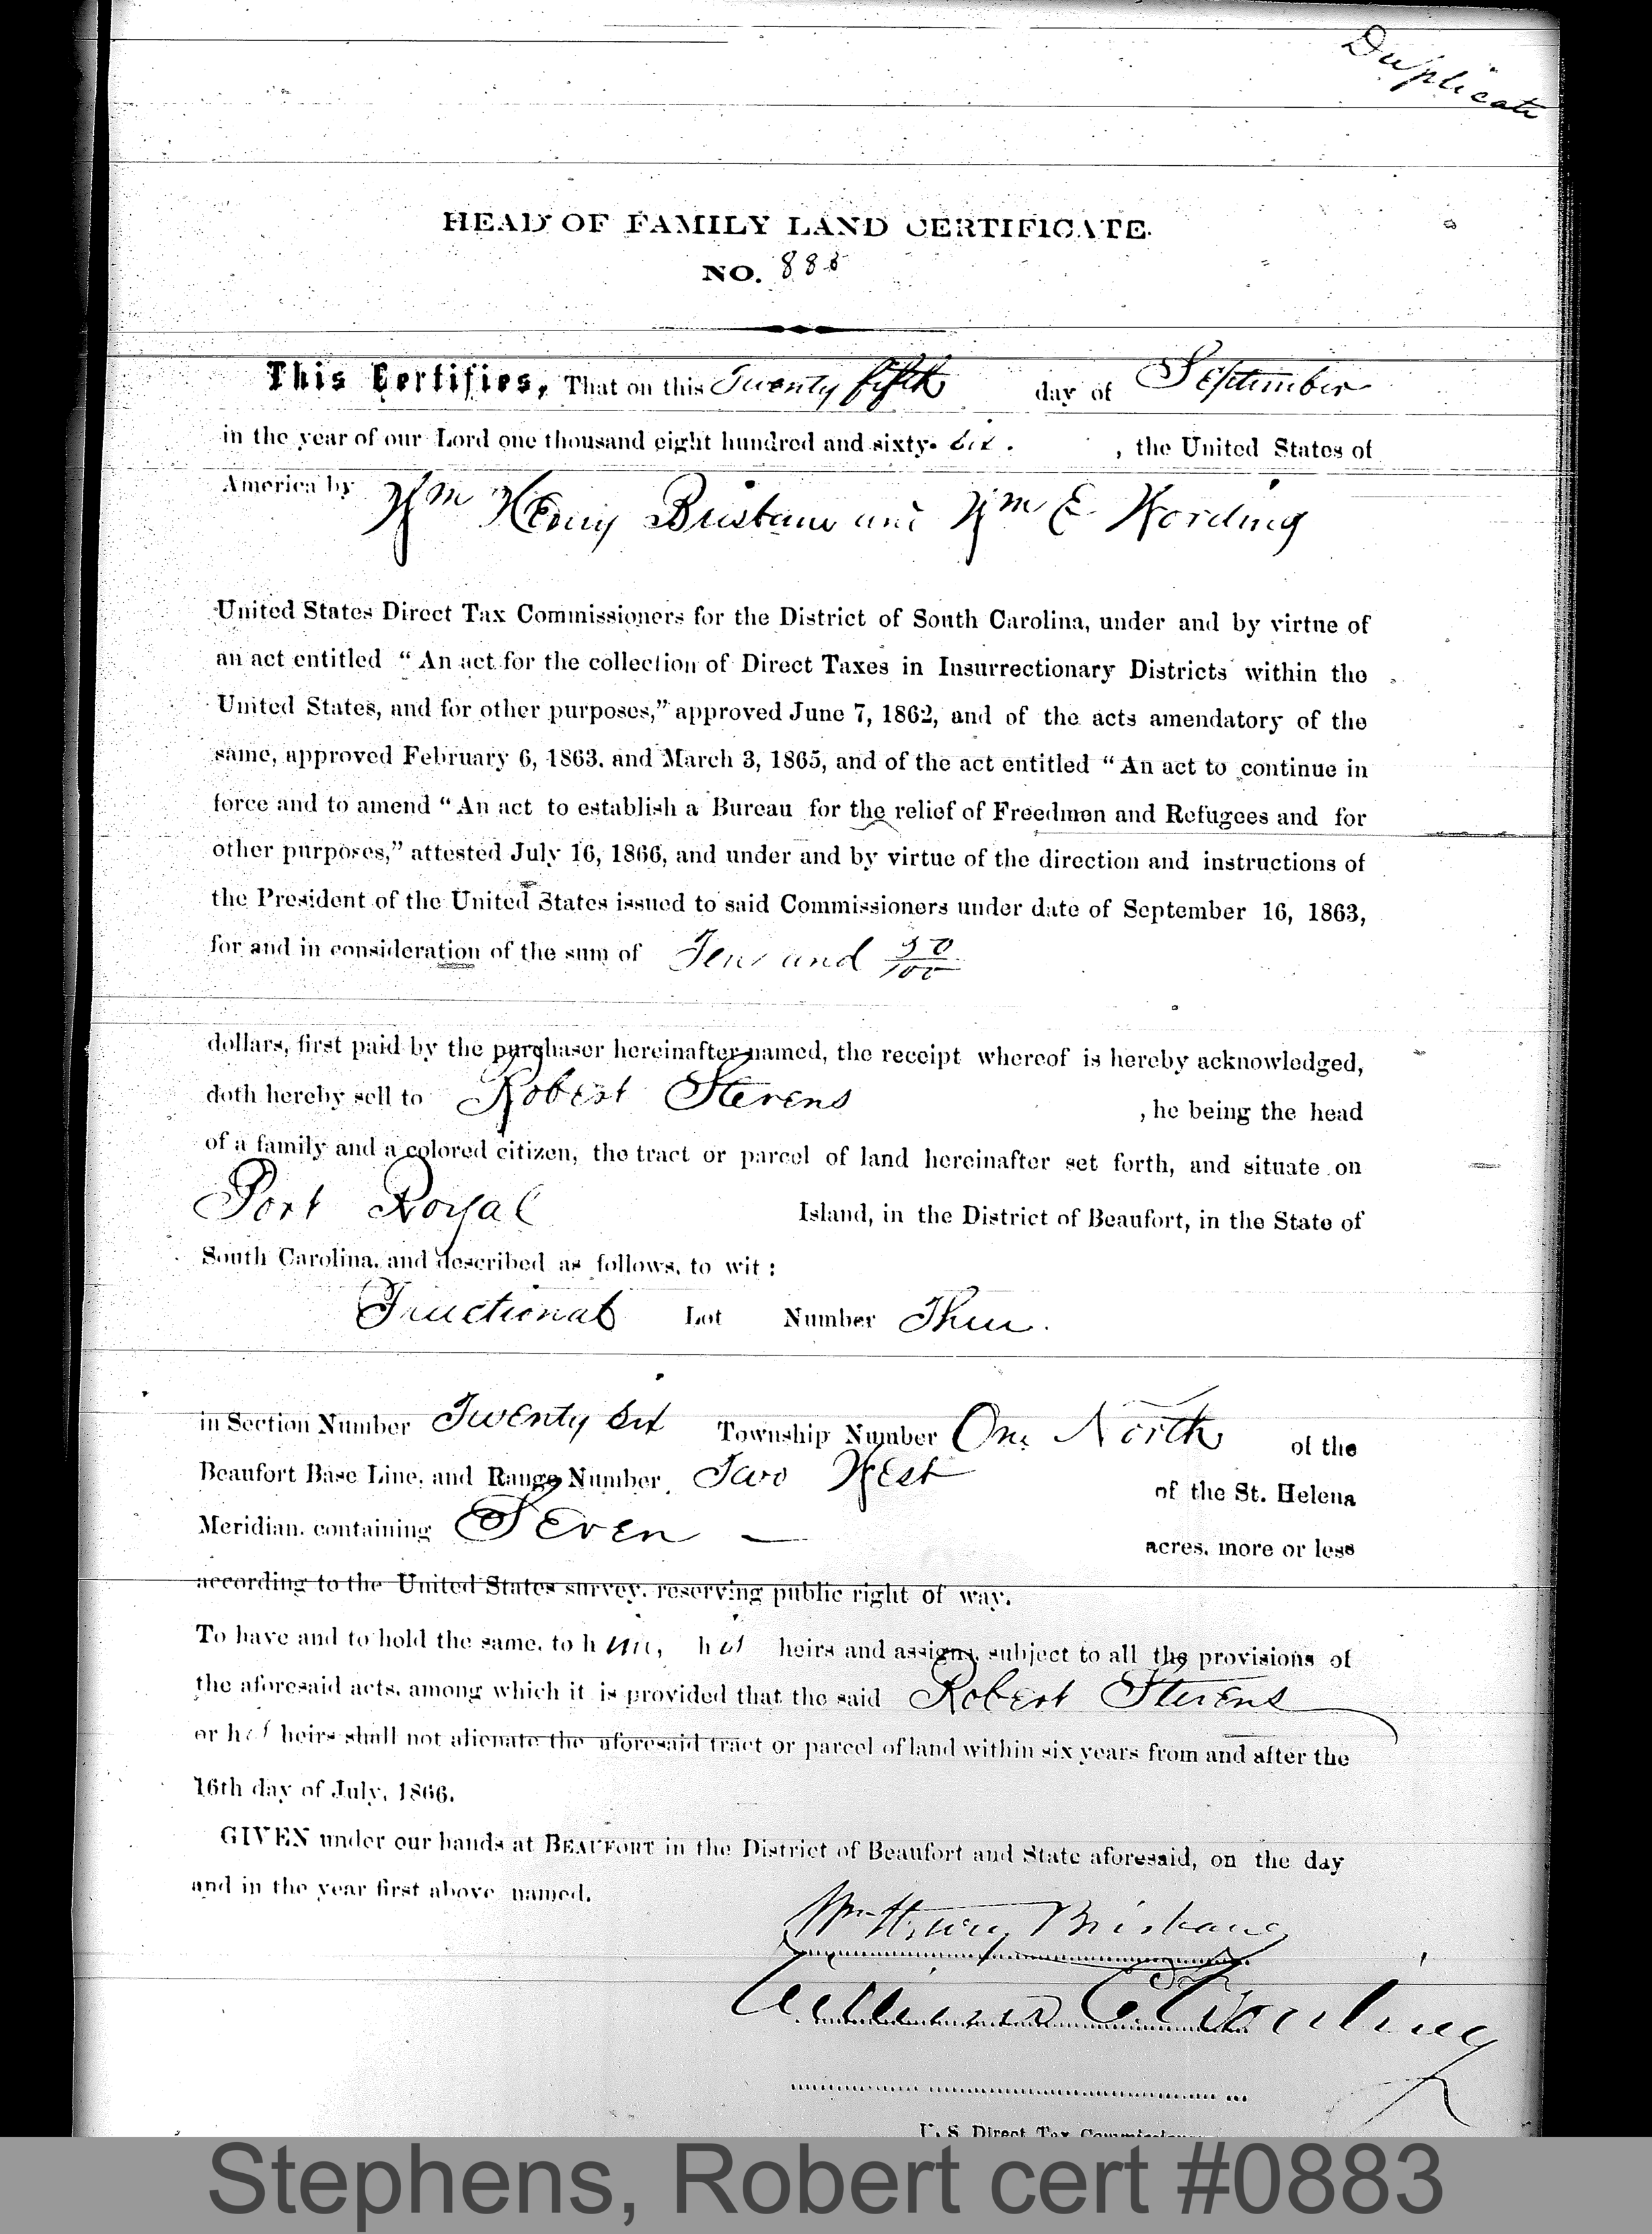 Duplicate
HEAD OF FAMILY LAND CERTIFICATE.
NO. 883
This Certifies, That on this Twenty fifth day of September
in the year of our Lord one thousand eight hundred and sixty-six. , the United States of
America by Wm Henry Brisbane and Wm E Wording
United States Direct Tax Commissioners for the District of South Carolina, under and by virtue of
an act entitled “An act for the collection of Direct Taxes in Insurrectionary Districts within the
United States, and for other purposes,” approved June 7, 1862, and of the acts amendatory of the
same, approved February 6, 1863, and March 3, 1865, and of the act entitled “An act to continue in
force and to amend “An act to establish a Bureau for the relief of Freedmen and Refugees and for
other purposes,” attested July 16, 1866, and under and by virtue of the direction and instructions of
the President of the United States issued to said Commissioners under date of September 16, 1863,
for and in consideration of the sum of Ten and 50/100
dollars, first paid by the purchaser hereinafter named, the receipt whereof is hereby acknowledged,
doth hereby sell to Robert Stevens , he being the head
of a family and a colored citizen, the tract or parcel of land hereinafter set forth, and situate on
Port Royal Island, in the District of Beaufort, in the State of
South Carolina, and described as follows, to wit:
Fractional Lot Number Three.
in Section Number Twenty six Township Number One North of the
Beaufort Base Line, and Range Number Two West of the St. Helena
Meridian, containing Seven — acres, more or less
according to the United States survey, reserving public right of way.
To have and to hold the same, to him, his heirs and assigns, subject to all the provisions of
the aforesaid acts, among which it is provided that the said Robert Stevens
or his heirs shall not alienate the aforesaid tract or parcel of land within six years from and after the
16th day of July, 1866.
GIVEN under our hands at BEAUFORT in the District of Beaufort and State aforesaid, on the day
and in the year first above named.
Wm Henry Brisbane
William E Wording
U. S. Direct Tax Commissioners
Stephens, Robert cert #0883